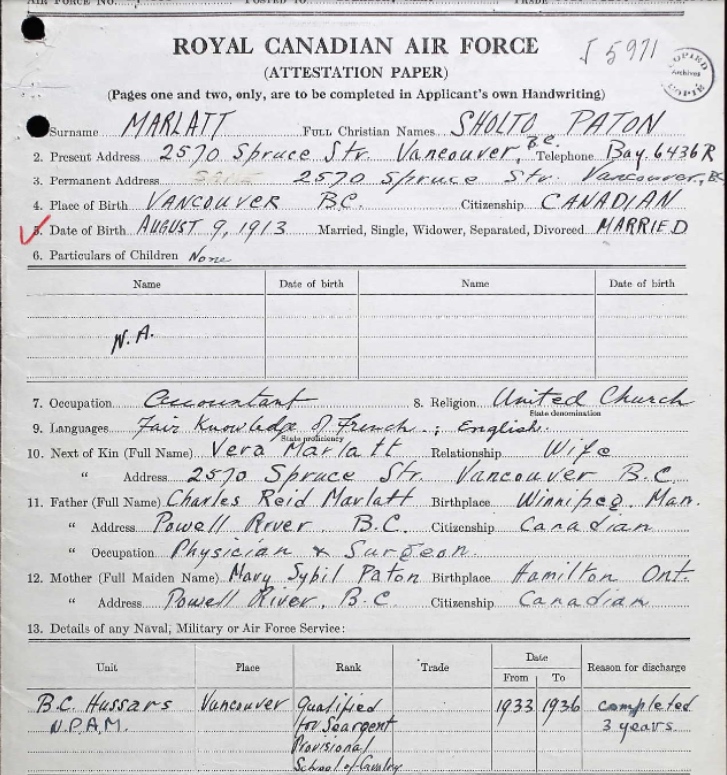 ROYAL CANADIAN AIR FORCE
J 5971
(ATTESTATION PAPER)
COPIED Archives COPIE
(Pages one and two, only, are to be completed in Applicant's own Handwriting)
Surname MARLATT Full Christian Names SHOLTO PATON
2. Present Address 2570 Spruce Str. Vancouver, B.C. Telephone Bay. 6436R
3. Permanent Address 2570 Spruce Str. Vancouver, BC
4. Place of Birth VANCOUVER B.C. Citizenship CANADIAN
5. Date of Birth AUGUST 9, 1913 Married, Single, Widower, Separated, Divorced MARRIED
6. Particulars of Children None
Name Date of birth Name Date of birth
N.A.
7. Occupation Accountant 8. Religion United Church
State denomination
9. Languages Fair Knowledge of French ; English.
State proficiency
10. Next of Kin (Full Name) Vera Marlatt Relationship Wife
" Address 2570 Spruce Str. Vancouver B.C.
11. Father (Full Name) Charles Reid Marlatt Birthplace Winnipeg. Man.
" Address Powell River B.C. Citizenship Canadian
" Occupation Physician & Surgeon.
12. Mother (Full Maiden Name) Mary Sybil Paton Birthplace Hamilton Ont.
" Address Powell River, B.C. Citizenship Canadian
13. Details of any Naval, Military or Air Force Service:
Unit Place Rank Trade Date Reason for discharge
From To
B.C. Hussars Vancouver Qualified 1933 1936 completed
N.P.A.M. for Seargent 3 years.
Provisional
School of Cavalry